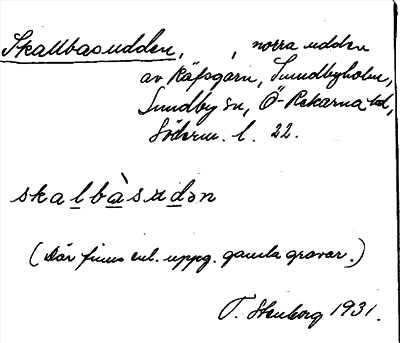 Skallbasudden, norra udden
av Räfsgarn, Sundbyholm,
Sundby sn, Ö-Rekarne hd,
Söderm. l. 22.
skalbàsudən
(Där finns enl. uppg. gamla gravar.)
T. Stenborg 1931.